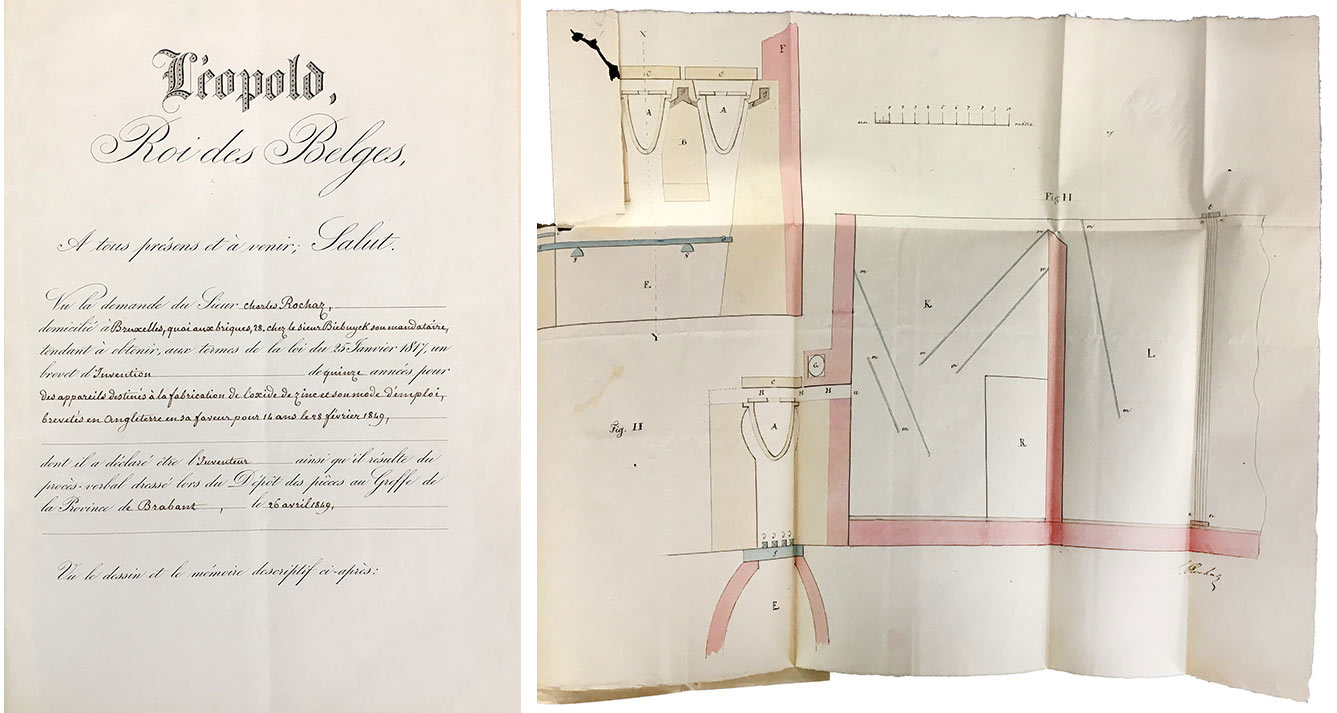 Léopold,
Roi des Belges,
A tous présens et à venir; Salut.
Vu la demande du Sieur Charles Rochaz,
domicilié à Bruxelles, quai aux briques, 28. chez le sieur Biebuyck son mandataire,
tendant à obtenir, aux termes de la loi du 25 Janvier 1817, un
brevet d'Invention de quinze années pour
des appareils destinés à la fabrication de l'oxide de zinc et son mode d'emploi,
brevetés en Angleterre en sa faveur pour 14 ans le 28 février 1849,
dont il a déclaré être l'Inventeur ainsi qu'il résulte du
procès-verbal dressé lors du Dépôt des pièces au Greffe de
la Province de Brabant, le 26 avril 1849,
Vu le dessin et le mémoire descriptif ci-après:
N
F
C C
A A
B
E
mètre
Fig. II
K
L
G
C
H H H
A
Fig. II
R
S
E
Rochaz